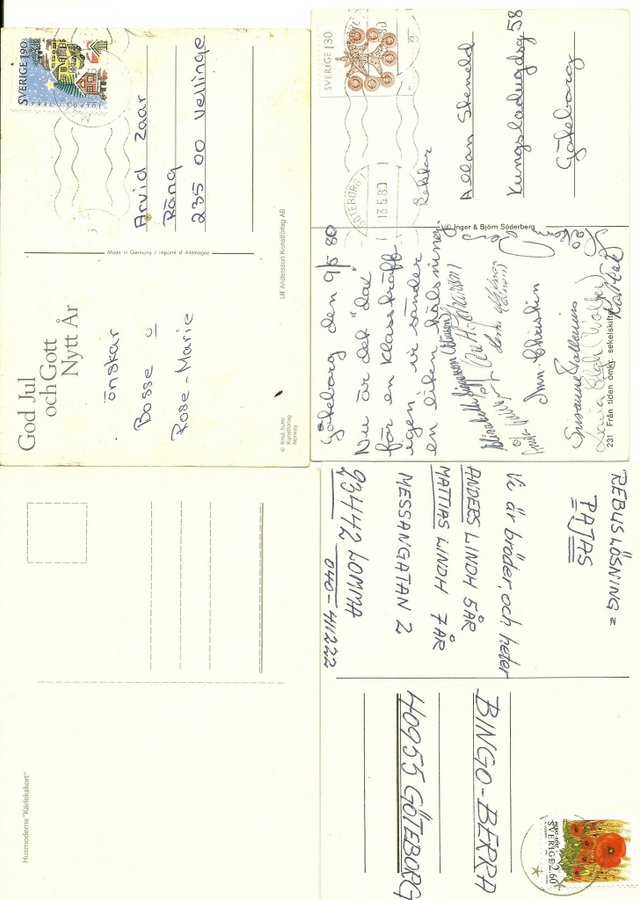 SVERIGE 190
Arvid Zaar
Räng
235 00 Vellinge
Made in Germany / Importé d'Allemagne
God Jul
och Gott
Nytt År
önskar
Bosse o
Rose-Marie
Ulf Andersson Konstförlag AB
© Knut Aune
Kunstforlag
Norway
SVERIGE 130
GÖTEBORG
13.5.80
Allan
Kungsladugdsg 58
Göteborg
© Inger & Björn Söderberg
Göteborg den 9/5 80
Nu är det "dax"
för en klassträff
igen vi sänder
en liten hälsning.
Ann-Christin
231. Från tiden omkr. sekelskiftet
Husmoderns "Kärlekskort"
REBUSLÖSNING =
PAJAS
Vi är bröder, och heter
ANDERS LINDH 5 ÅR
MATTIAS LINDH 7 ÅR
MESSANGATAN 2
23442 LOMMA
040-411222
BINGO-BERRA
40955 GÖTEBORG
SVERIGE 2.60